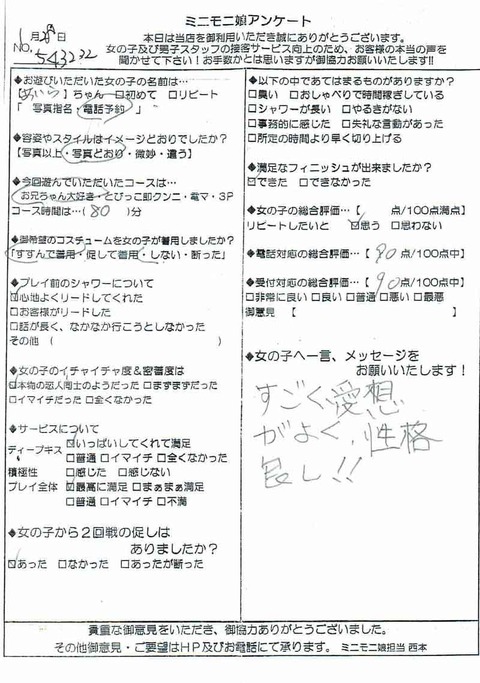 ミニモニ娘アンケート
1月28日
NO. 543232
本日は当店を御利用いただき誠にありがとうございます。
女の子及び男子スタッフの接客サービス向上のため、お客様の本当の声を
聞かせて下さい!お手数かとは思いますが御協力お願いいたします!!
◆お遊びいただいた女の子の名前は…
【あいら】ちゃん □初めて □リピート
「 写真指名・電話予約 」
◆容姿やスタイルはイメージどおりでしたか?
【写真以上・写真どおり・微妙・違う】
◆今回遊んでいただいたコースは…
お兄ちゃん大好き・とびっこ即クンニ・電マ・3P
コース時間は…( 80 )分
◆御希望のコスチュームを女の子が着用しましたか?
「すすんで着用・促して着用・しない・断った」
◆プレイ前のシャワーについて
☑心地よくリードしてくれた
□お客様がリードした
□話が長く、なかなか行こうとしなかった
その他( )
◆女の子のイチャイチャ度&密着度は
☑本物の恋人同士のようだった □まずまずだった
□イマイチだった □全くなかった
◆サービスについて
ディープキス ☑いっぱいしてくれて満足
□普通 □イマイチ □全くなかった
積極性 □感じた □感じない
プレイ全体 ☑最高に満足 □まぁまぁ満足
□普通 □イマイチ □不満
◆女の子から2回戦の促しは
ありましたか?
☑あった □なかった □あったが断った
◆以下の中であてはまるものがありますか?
□臭い □おしゃべりで時間稼ぎしている
□シャワーが長い □やるきがない
□事務的に感じた □失礼な言動があった
□所定の時間より早く切り上げる
◆満足なフィニッシュが出来ましたか?
☑できた □できなかった
◆女の子の総合評価…【 点/100点満点】
リピートしたいと ☑思う □思わない
◆電話対応の総合評価…【 90 点/100点中】
◆受付対応の総合評価…【 90 点/100点中】
□非常に良い □良い □普通 □悪い □最悪
御意見【 】
◆女の子へ一言、メッセージを
お願いいたします!
すごく愛想
がよく、性格
良し!!
貴重な御意見をいただき、御協力ありがとうございました。
その他御意見・ご要望はHP及びお電話にて承ります。 ミニモニ娘担当 西本